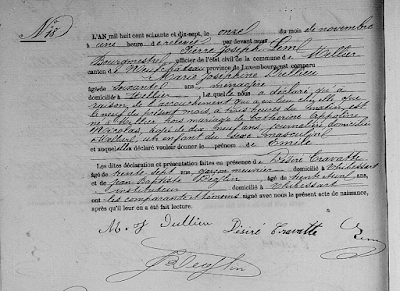 L'AN mil huit cent soixante et dix-sept, le onze du mois de novembre
à une heure de relevée par devant nous
Pierre Joseph
Bourgmestre officier de l'état civil de la commune de
canton de Neufchâteau province de Luxembourg est comparu
Marie Josephine Dullieu
âgée de soixante ans, ménagère
domiciliée à laquelle nous a déclaré qu'à
raison de l'accouchement qui a eu lieu chez elle, que
le neuf du présent mois, à huit heures du matin, est
né hors mariage de Catherine Appoline
Nicolas, âgée de dix neuf ans, journalière, domiciliée
un enfant du sexe masculin
et auquel elle déclare vouloir donner le prénom de Emile
Les dites déclaration et présentation faites en présence de Désiré Cravatte
âgé de trente sept ans, garçon meunier domicilié à Thibessart
et de Jean Baptiste âgé de trente ans,
instituteur domicilié à Thibessart
ont les comparante témoins signé avec nous le présent acte de naissance,
après qu'il leur en a été fait lecture.
M. J Dullieu Désiré Cravatte